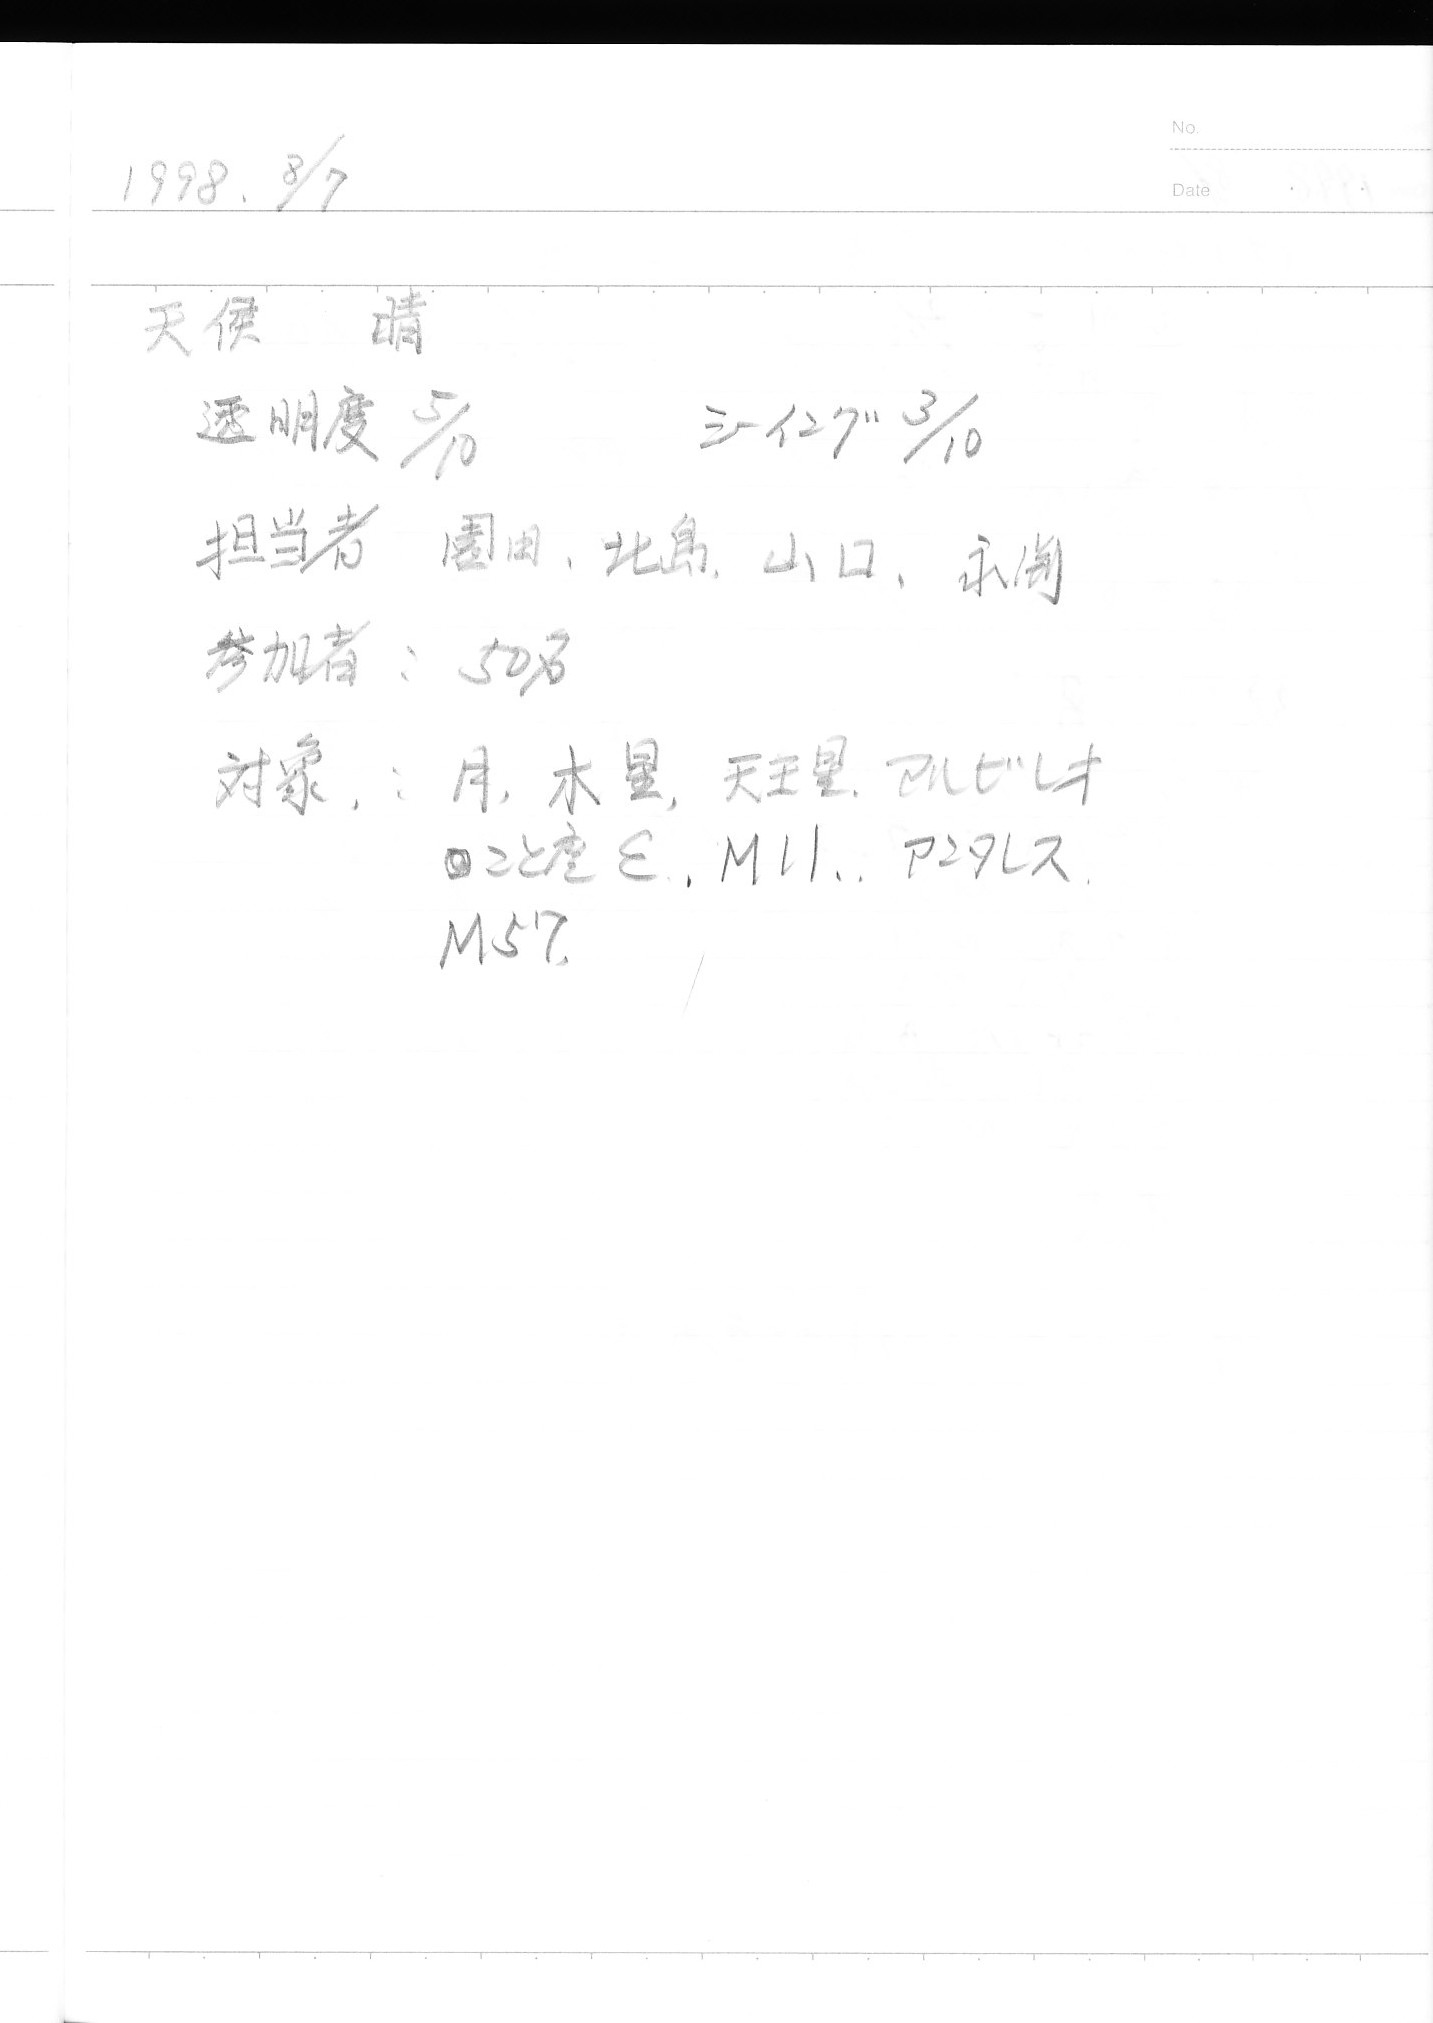 No.
1998. 8/7
Date
天候 晴
透明度 5/10 シーイング 3/10
担当者 園田、北島、山口、永渕
参加者: 50名
対象.: 月, 木星, 天王星. アルビレオ
こと座ε., M11., アンタレス.
M57.